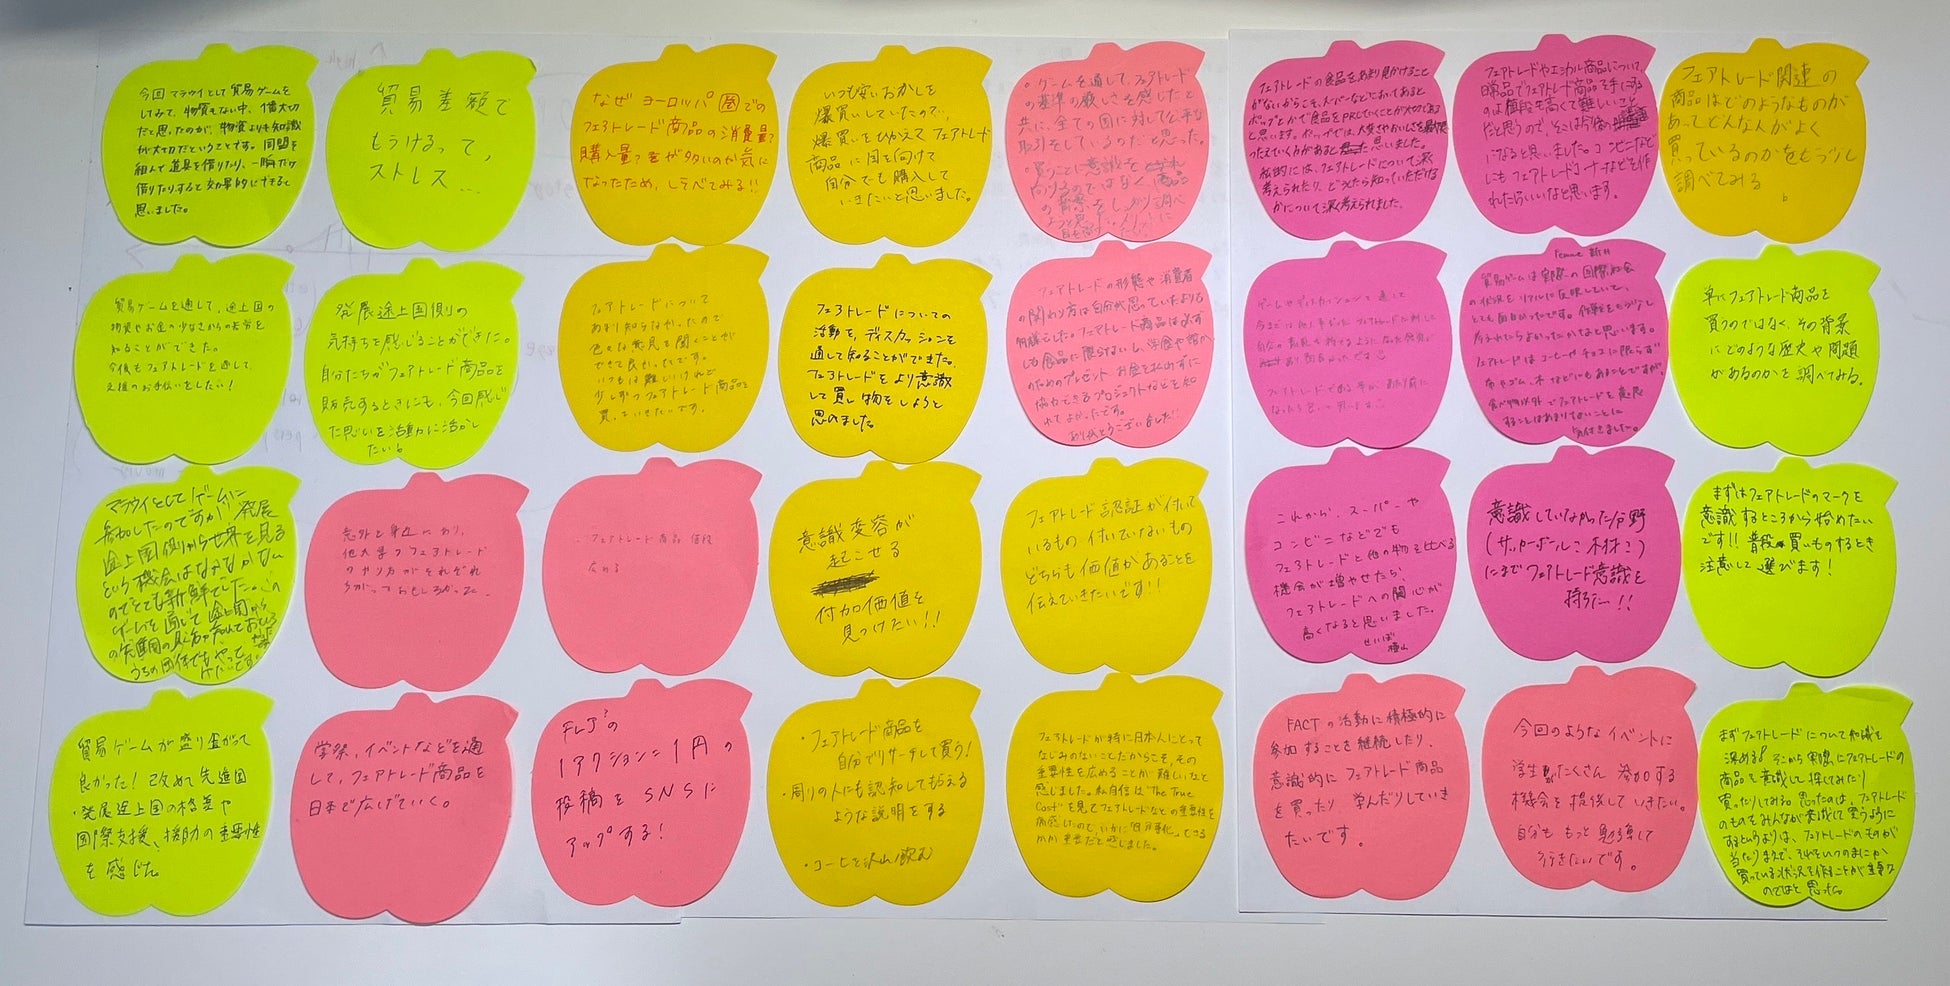 今回マラウイとして貿易ゲームを
してみて、物資もない中、一番大切
だと思ったのが、物資よりも知識
が大切だということです。同盟を
組んで道具を借りたり、一瞬だけ
借りたりすると効果的にできると
思いました。
貿易差額で
もうけるって、
ストレス…
なぜヨーロッパ圏での
フェアトレード商品の消費量?
購入量?が多いのか気に
なったため、しらべてみる!!
いつも安いおかしを
爆買いしていたので、
爆買いをひかえてフェアトレード
商品に目を向けて
自分でも購入して
いきたいと思いました。
・ゲームを通して、フェアトレード
の基準の厳しさを感じたと
共に、全ての国に対して公平な
取引をしているのだと思った。
・買うことに意識を
向けるのではなく、商品
の背景をしっかり調べ
フェアトレードの食品をあまり見かけること
がないからこそ、スーパーなどにおいてあると
ポップとかで食品をPRしていくことが大切である
と思います。ポップでは、大変さやおいしさを
つたえていく力があると思いました。
私的には、フェアトレードについて深く
考えられたり、どうたら知っていただける
かについて深く考えられました。
フェアトレードやエシカル商品について、
商品でフェアトレード商品を手に取る
のは値段も高くて難しいこと
だと思うので、そこは今後の
になると思いました。コンビニなど
にもフェアトレードコーナーなどを作
れたらいいなと思います。
フェアトレード関連の
商品はどのようなものが
あってどんな人がよく
買っているのかをもう少し
調べてみる
貿易ゲームを通して、途上国の
物資やお金の少なさからの苦労を
知ることができた。
今後もフェアトレードを通して、
支援のお手伝いをしたい!
発展途上国側の
気持ちを感じることができた。
自分たちがフェアトレード商品を
販売するときにも、今回感じ
た思いを活動に活かし
たい。
フェアトレードについて
あまり知らなかったので
色々な意見を聞くことが
できて良かったです。
いつもは難しいけれど
少しずつフェアトレード商品を
買っていきたいです。
フェアトレードについての
活動を、ディスカッションを
通して知ることができた。
フェアトレードをより意識
して買い物をしようと
思いました。
フェアトレードの形態や消費者
の関わり方は自分が思っていたよりも
多様でした。フェアトレード商品は必ず
しも食品に限らないし、洋食や誰か
のためのプレゼント、お金を払わずに
協力できるプロジェクトなどを知
れてよかったです。
ありがとうございました!!
ゲームやディスカッションを通して
貿易ゲームは実際の国際社会
の状況をリアルに反映していて、
とても面白かったです。作戦をもう少し
考えれたらよかったかなと思います。
フェアトレードはコーヒーやチョコに限らず
布やゴム、木などにもあることですが、
食べ物以外でフェアトレードを意識
することはあまりないことに
気付きました。
単にフェアトレード商品を
買うのではなく、その背景
にどのような歴史や問題
があるのかを調べてみる。
マラウイとしてゲームに
参加したのですが、発展
途上国側から世界を見る
という機会はなかなかない
のでとても新鮮でした。この
ゲームを通して途上国から
うちの団体でもやって
意外と身近にあり、
他大学のフェアトレード
のやり方がそれぞれ
ちがっておもしろかった。
フェアトレード商品 値段
広める
意識変容が
起こせる
付加価値を
見つけたい!!
フェアトレード認証が付いて
いるもの・付いていないもの
どちらも価値があることを
伝えていきたいです!!
これから、スーパーや
コンビニなどでも
フェアトレードと他の物を比べる
機会が増やせたら、
フェアトレードへの関心が
高くなると思いました。
意識していなかった分野
(サッカーボール:木材:)
にまでフェアトレード意識を
持ちたい!!
まずはフェアトレードのマークを
意識するところから始めたい
です!!普段、買いものするとき
注意して選びます!
貿易ゲームが盛り上がって
良かった!改めて先進国
・発展途上国の格差や
国際支援、援助の重要性
を感じた。
学祭、イベントなどを通
して、フェアトレード商品を
日本で広げていく。
FLJ?の
1アクション=1円の
投稿をSNSに
アップする!
・フェアトレード商品を
自分でリサーチして買う!
・周りの人にも認知してもらえる
ような説明をする
・コーヒーを沢山飲む
フェアトレードが特に日本人にとって
なじみのないことだからこそ、その
重要性を広めることが難しいなと
感じました。私自信は"The True
Cost"を見てフェアトレードなどの重要性を
痛感したので、いかに"自分事化"できる
かが重要だと感じました。
FACTの活動に積極的に
参加することを継続したり、
意識的にフェアトレード商品
を買ったり、学んだりしていき
たいです。
今回のようなイベントに
学生がたくさん参加する
機会を提供していきたい。
自分ももっと勉強して
行きたいです。
まずフェアトレードについて知識を
深める!そこから実際にフェアトレードの
商品を意識して探してみたり
買ったりしてみる。思ったのは、フェアトレード
のものをみんなが意識して買うように
するというよりは、フェアトレードのものが
当たりまえで、それをいつのまにか
買っている状況を作ることが重要な
のではと思った。